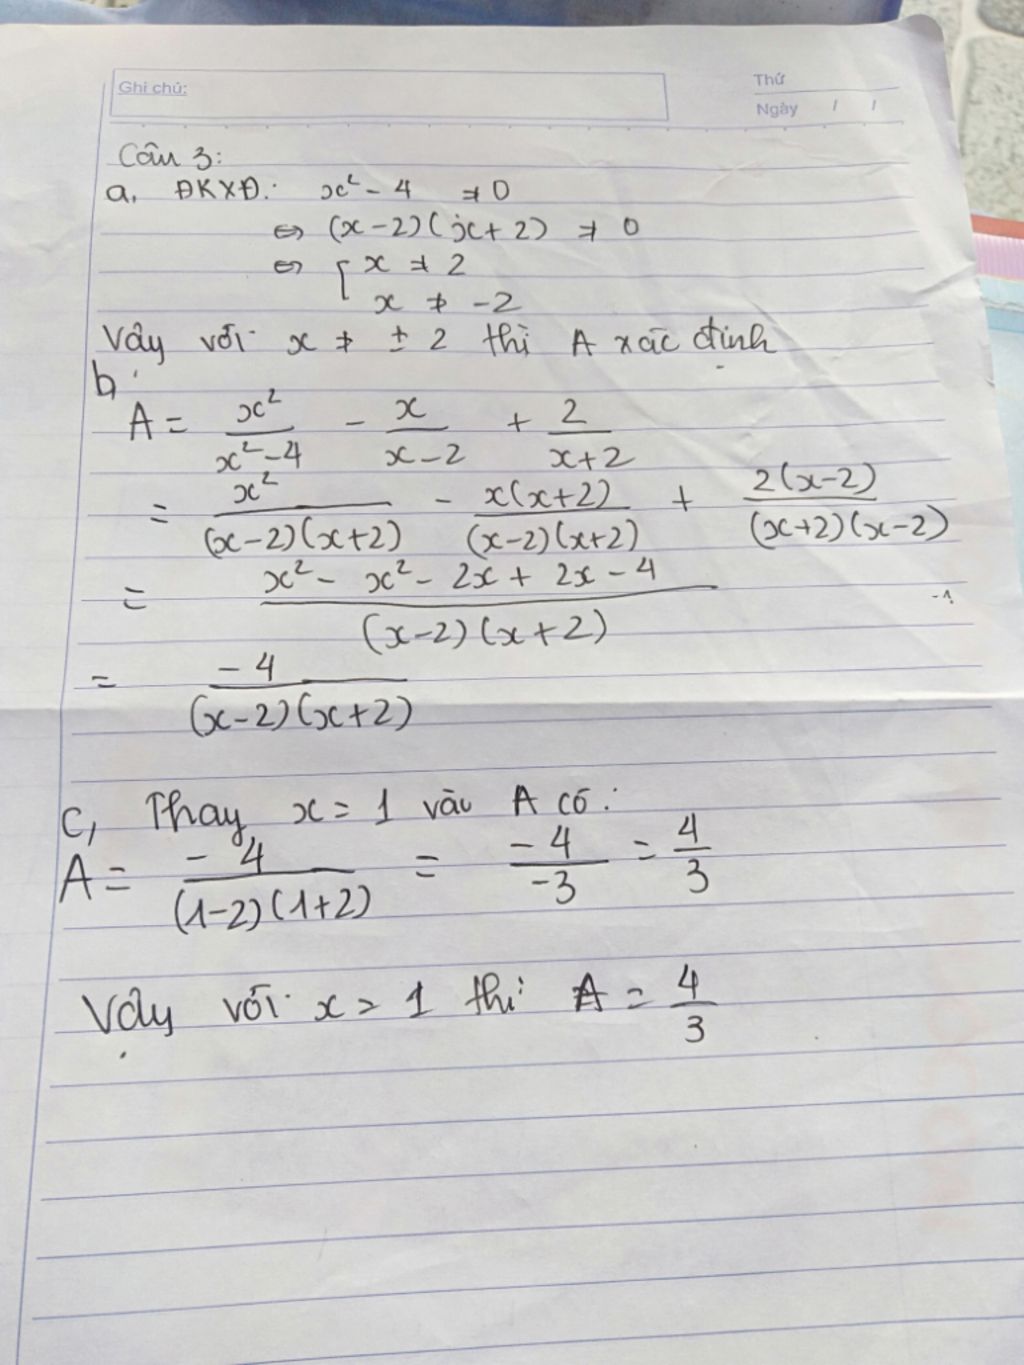 Ghi chú:
Thứ
Ngày / /
Câu 3:
a, ĐKXĐ: x² - 4 ≠ 0
⇔ (x-2)(x+2) ≠ 0
⇔ [ x ≠ 2
x ≠ -2
Vậy với x ≠ ± 2 thì A xác định
b,
A = x²/(x²-4) - x/(x-2) + 2/(x+2)
= x²/((x-2)(x+2)) - x(x+2)/((x-2)(x+2)) + 2(x-2)/((x+2)(x-2))
= (x² - x² - 2x + 2x - 4)/((x-2)(x+2))
= -4/((x-2)(x+2))
c, Thay x = 1 vào A có:
A = -4/((1-2)(1+2)) = -4/-3 = 4/3
Vậy với x = 1 thì A = 4/3